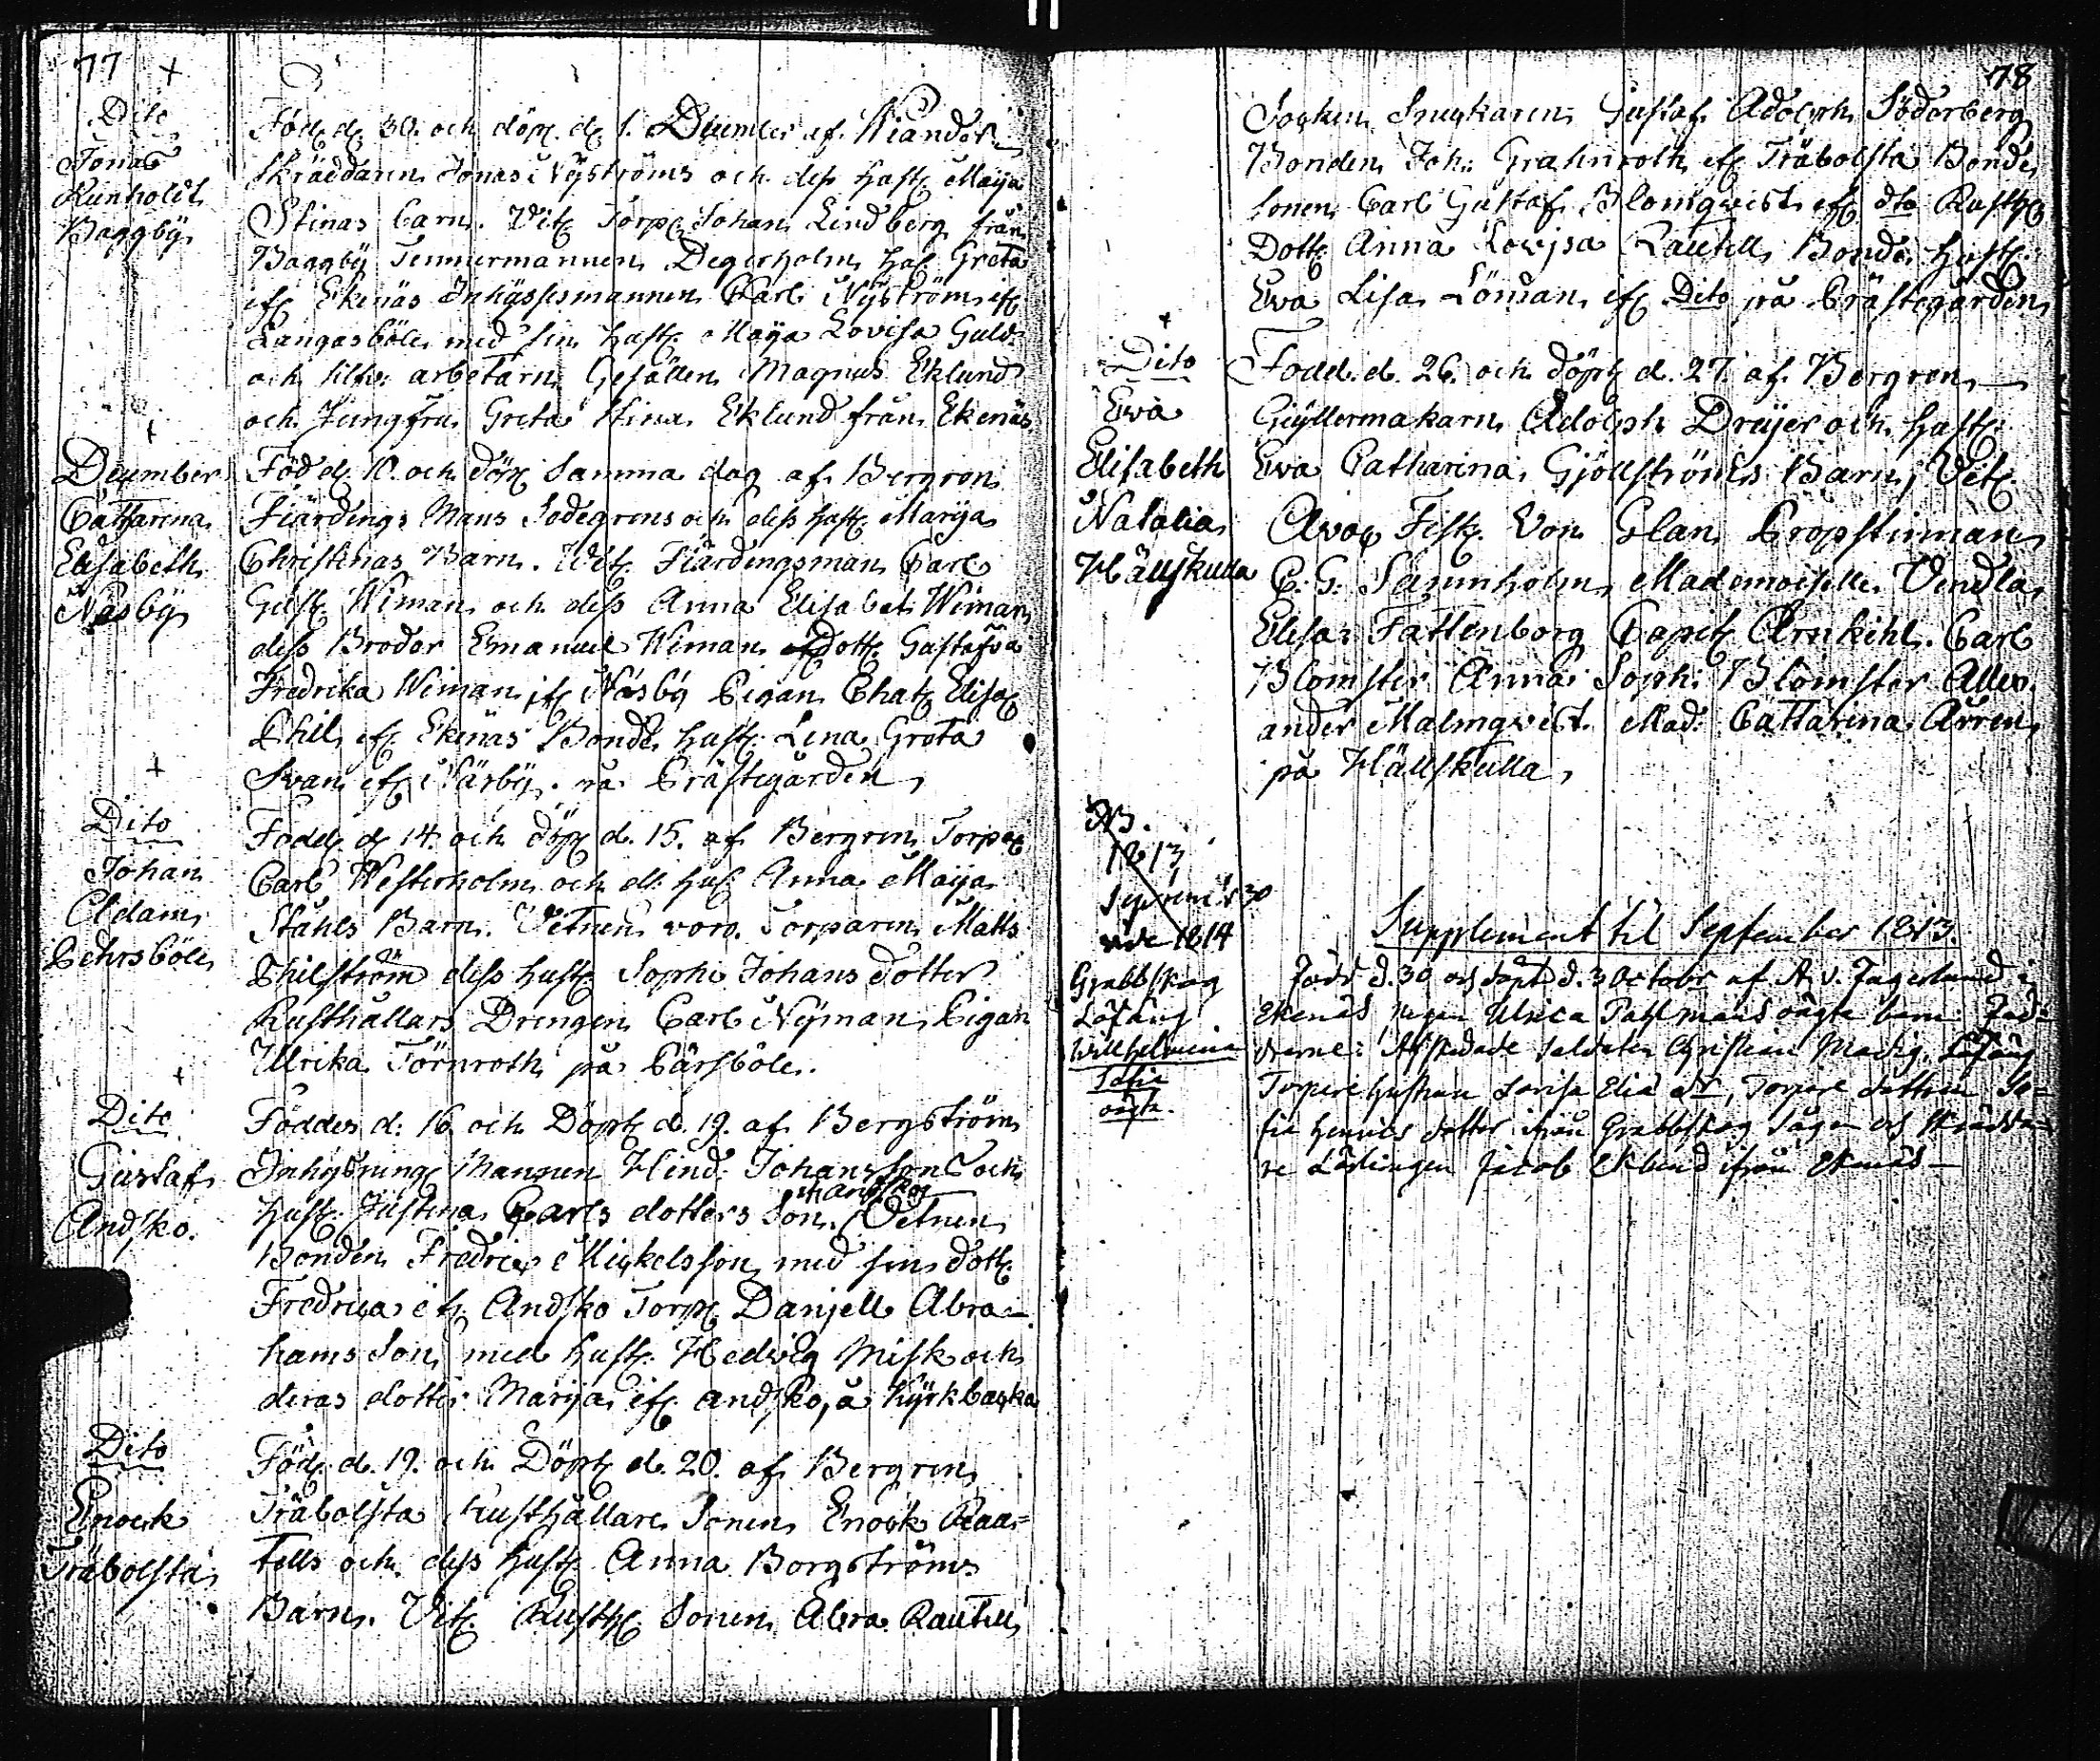 77 +
Dito
Jonas
Runholdt
Baggby
Föd. d. 30. och döpt. d. 1. December af Wiander
Skräddaren Jonas Nyströms och dess hust. Maija
Stinas barn. Vit. Torp. Johan Lindberg från
Baggby Temmermannen Degerholm hus. Greta
if. Ekenäs Inhyssesmannen Carl Nyström if.
Langansböle med sin hust. Maija Lovisa Guld-
och silfv: arbetarn Gesällen Magnus Eklund
och Jungfru Greta Stina Eklund från Ekenäs
+
December
Cattarina
Elisabeth
Näsby
Född d. 10. och döpt samma dag af Bergren
Fiärdings Mans Sodegrens och dess hust. Marija
Christinas Barn. Vit. Fiärdingsman Carl
Gust. Wiman och dess Anna Elisabet Wiman
dess Broder Emanuel Wiman Dott. Gustafva
Fredrika Wiman if. Näsby Pigan Chat. Elisa
Phil if. Ekenäs Bonde hust. Lena Greta
Svan if. Närby. på Prästegården
+
Dito
Johan
Adam
Pehrsböle
Fodd. d. 14. och döpt d. 15. af Bergren Torpa.
Carl Westerholm och des. hus. Anna Maija
Ståhls Barn. Vetnen voro. Torparen Matts
Philström dess hust. Sophi Johans dotter
Rusthållars Drengen Carl Nyman, Pigan
Ullrika Törnroth på Pärsböle.
+
Dito
Gustaf
Andsko.
Föddes d: 16. och Döpt. d. 19. af Bergström
Inhysning Mannen Hind. Johansson och
hust. Justina Carls dotters Son. (Vetnen
Bonden Fredric Mickelsson med sin dott.
Fredrica if. Andsko Torp. Danjell Abra-
hams Son med hust. Hedvig Misk och
deras dotter Marija if. andsko, å Kyrkbacka
Dito
Enock
Träbolsta
Föd. d. 19. och Döpt. d. 20. af Bergren
Träbolsta Rusthållare Sonen Enock Raa-
tells och dess hust. Anna Borgströms
Barn. Vit. Rusth. Sonen Abra Rautell
78
Socken Snickaren Gustaf Adolph Söderberg
Bonden Joh: Grahnroth if. Träbolsta Bonde
sonen Carl Gustaf Blomqvist if. dto Rusth.
Dott. Anna Lovisa Rautell Bonde hust.
Eva Lisa Löman if. Dito på Prästegården
+
Dito
Eva
Elisabeth
Natalia
Hällskulla
Fodd. d. 26. och döpt. d. 27. af Bergren
Gjyllermakarn Adolph Dreijer och hust.
Eva Catharina Gjöllströms Barn, Vit.
Advoc Fisk. Von Glan Propstinnan
C. G. Sannholm Mademoiselle Vendla
Elisa Fattenborg Capit. Arnkihl. Carl
Blomster Anna Soph: Blomster Allex-
ander Malmqvist. Mad: Cattarina Arren
på Hällskulla
NB.
1813
Septem. d 30
1814
Grabbskog
Löfäng
Willhelmina
Sofia
oägta.
Supplement til September 1813.
Född d. 30 och döpt d. 3 October af A. v. Fagerlund i
Ekenäs, Pigan Ulrica Pahlmans oägta barn. Fad-
drarne: Afskedade Soldaten Christian Madig, Löfäng
Torpare hustrun Lovisa Elia dr, Torpare dottren So-
fia Henrics dotter ifrån Grabbskog Såge och Skrädda-
re Lärlingen Jacob Eklund ifrån Ekenäs